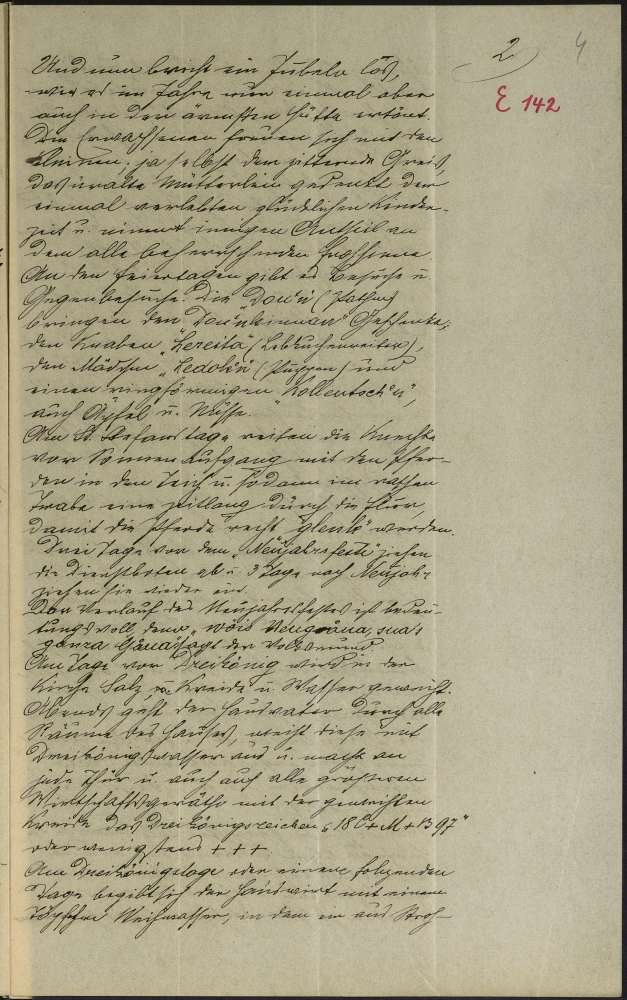 2
4
E 142
Und nun bricht ein Jubeln los,
wie es im Jahre nur einmal aber
auch in der ärmsten Hütte ertönt.
Die Erwachsenen freuen sich mit den
Kleinen, ja selbst der zitternde Greis,
das uralte Mütterlein gedenkt der
einmal verlebten glücklichen Kinder-
zeit u. nimmt innigen Antheil an
dem alle beherrschenden
An den Feiertagen gibt es Besuche u.
Gegenbesuche. Die "Don'n (Pathen)
bringen den Geschenke,
den Knaben "Lereita" (Lebkuchenreiter),
den Mädchen "Ledokn" (Puppen) und
einen ringförmigen
auch Äpfel u. Nüsse.
Am St. Stefanstage reiten die Knechte
vor Sonnen Aufgang mit den Pfer-
den in den Teich u. sodann im raschen
Trabe eine zeitlang durch die Flur,
damit die Pferde recht "glenk" werden.
Drei Tage vor dem "Neujahrsfeste" ziehen
die Dienstboten ab u. 3 Tage nach Neujahr
ziehen sie wieder ein.
Der Verlauf des Neujahrsfestes ist bedeu-
tungsvoll, denn "wöis
ganza sagt der Volksmund.
Am Tage vor Dreikönig wird in der
Kirche Salz, Kreide u. Wasser geweiht.
Abends geht der Hausvater durch alle
Räume des Hauses, weiht diese mit
Dreikönigswasser aus u. macht an
jede Thür u. auch auf alle grösseren
Wirtschaftsgeräthe mit der geweihten
Kreide das Dreikönigszeichen "18 C + M + B 97"
oder wenigstens + + +
Am Dreikönigstage oder einem folgenden
Tage begibt sich der Hauswirt mit einem
Töpfchen Weihwasser, in dem ein aus Stroh-